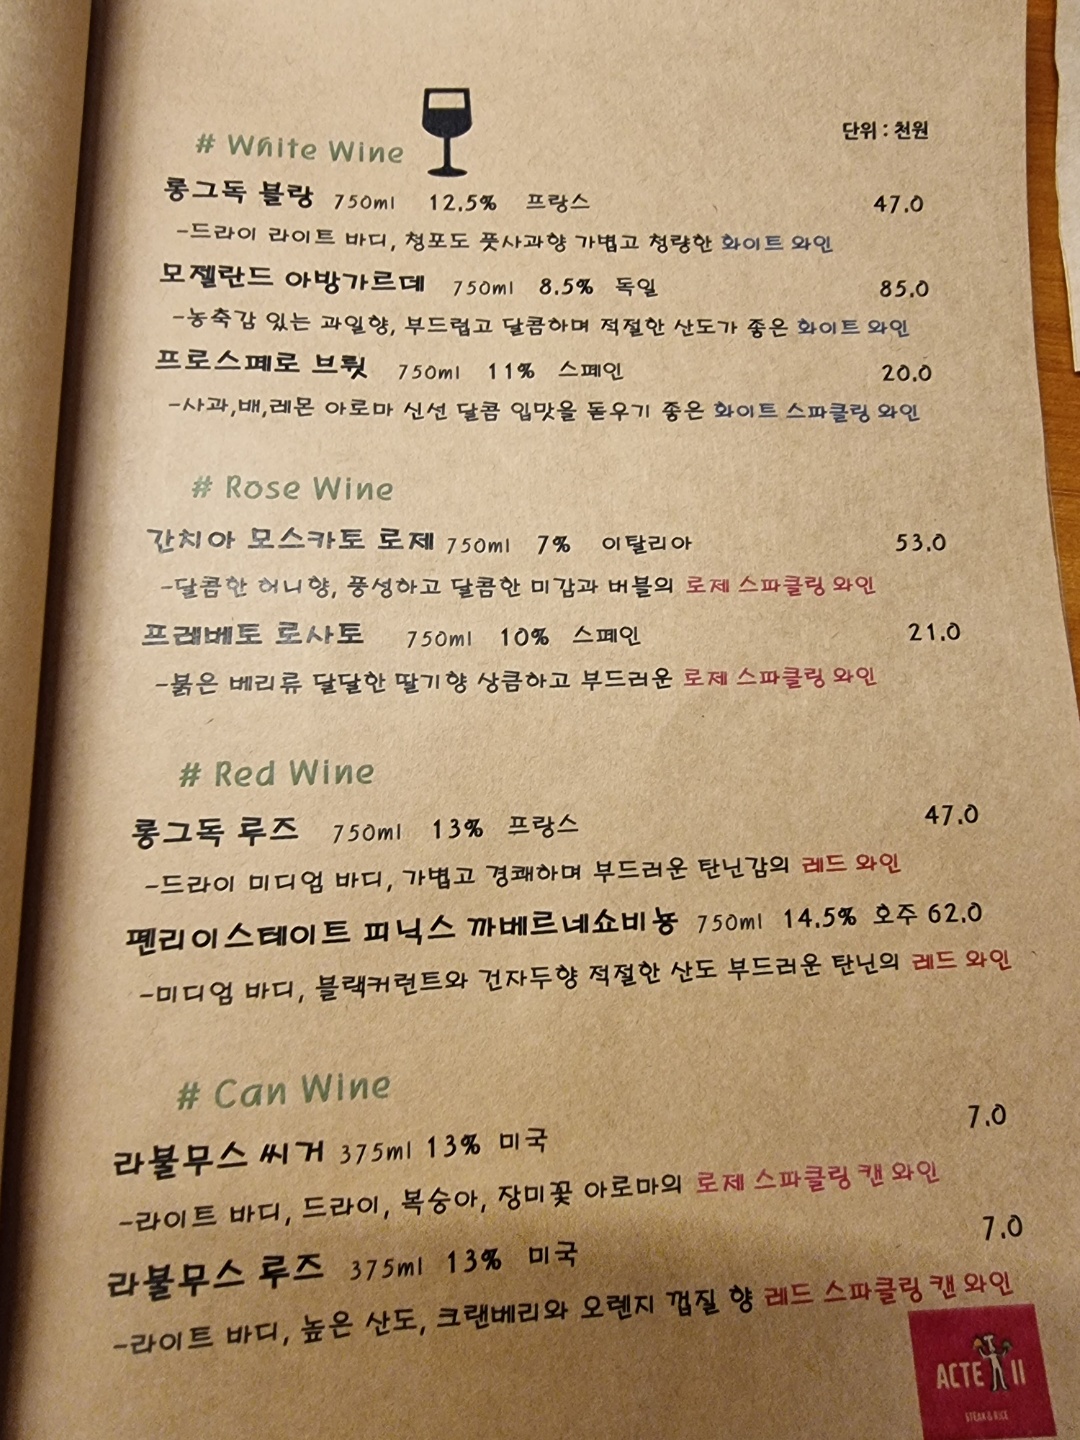 # White Wine
단위 : 천원
롱그독 블랑 750ml 12.5% 프랑스 47.0
-드라이 라이트 바디, 청포도 풋사과향 가볍고 청량한 화이트 와인
모젤란드 아방가르데 750ml 8.5% 독일 85.0
-농축감 있는 과일향, 부드럽고 달콤하며 적절한 산도가 좋은 화이트 와인
프로스페로 브륏 750ml 11% 스페인 20.0
-사과,배,레몬 아로마 신선 달콤 입맛을 돋우기 좋은 화이트 스파클링 와인
# Rose Wine
간치아 모스카토 로제 750ml 7% 이탈리아 53.0
-달콤한 허니향, 풍성하고 달콤한 미감과 버블의 로제 스파클링 와인
프레베토 로사토 750ml 10% 스페인 21.0
-붉은 베리류 달달한 딸기향 상큼하고 부드러운 로제 스파클링 와인
# Red Wine
롱그독 루즈 750ml 13% 프랑스 47.0
-드라이 미디엄 바디, 가볍고 경쾌하며 부드러운 탄닌감의 레드 와인
펜리이스테이트 피닉스 까베르네쇼비뇽 750ml 14.5% 호주 62.0
-미디엄 바디, 블랙커런트와 건자두향 적절한 산도 부드러운 탄닌의 레드 와인
# Can Wine
라불무스 씨거 375ml 13% 미국 7.0
-라이트 바디, 드라이, 복숭아, 장미꽃 아로마의 로제 스파클링 캔 와인
라불무스 루즈 375ml 13% 미국 7.0
-라이트 바디, 높은 산도, 크랜베리와 오렌지 껍질 향 레드 스파클링 캔 와인
ACTE II
STEAK & RICE